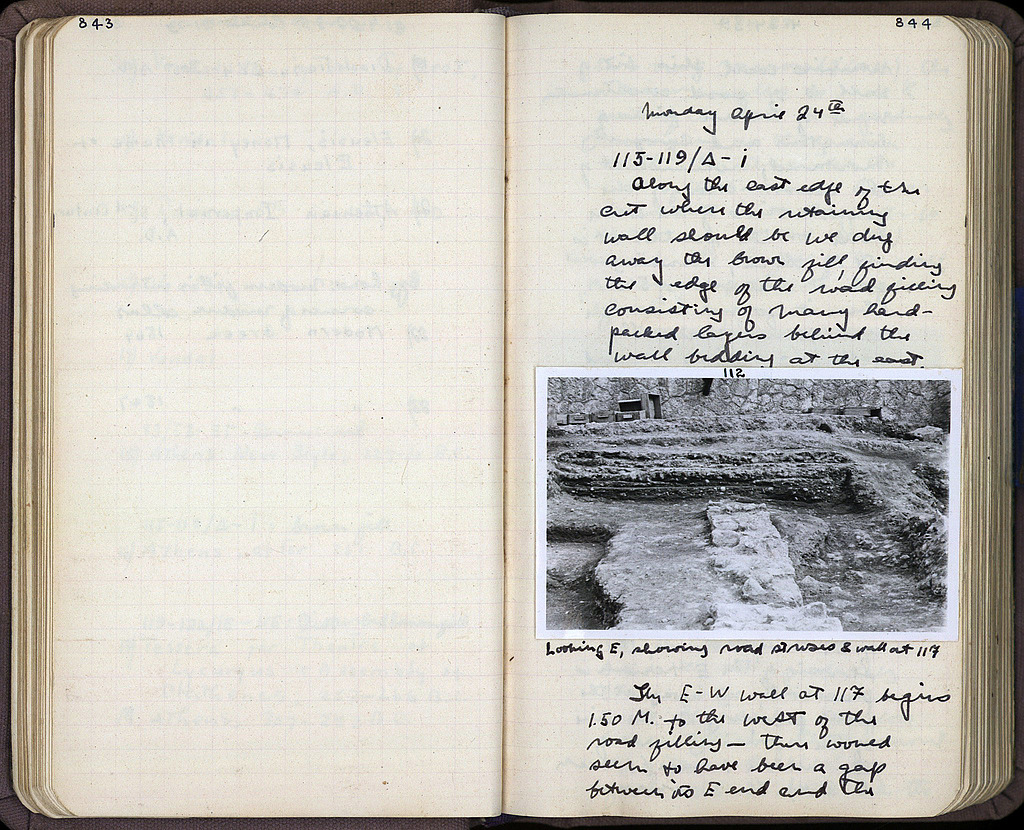 843
844
Monday April 24th
115-119/Δ-i
Along the east edge of the
cut where the retaining
wall should be we dug
away the brown fill, finding
the edge of the road filling
consisting of many hard-
packed layers behind the
wall bedding at the east.
112
Looking E, showing road strosis & wall at 117
The E-W wall at 117 begins
1.50 M. to the west of the
road filling — there would
seem to have been a gap
between its E end and the